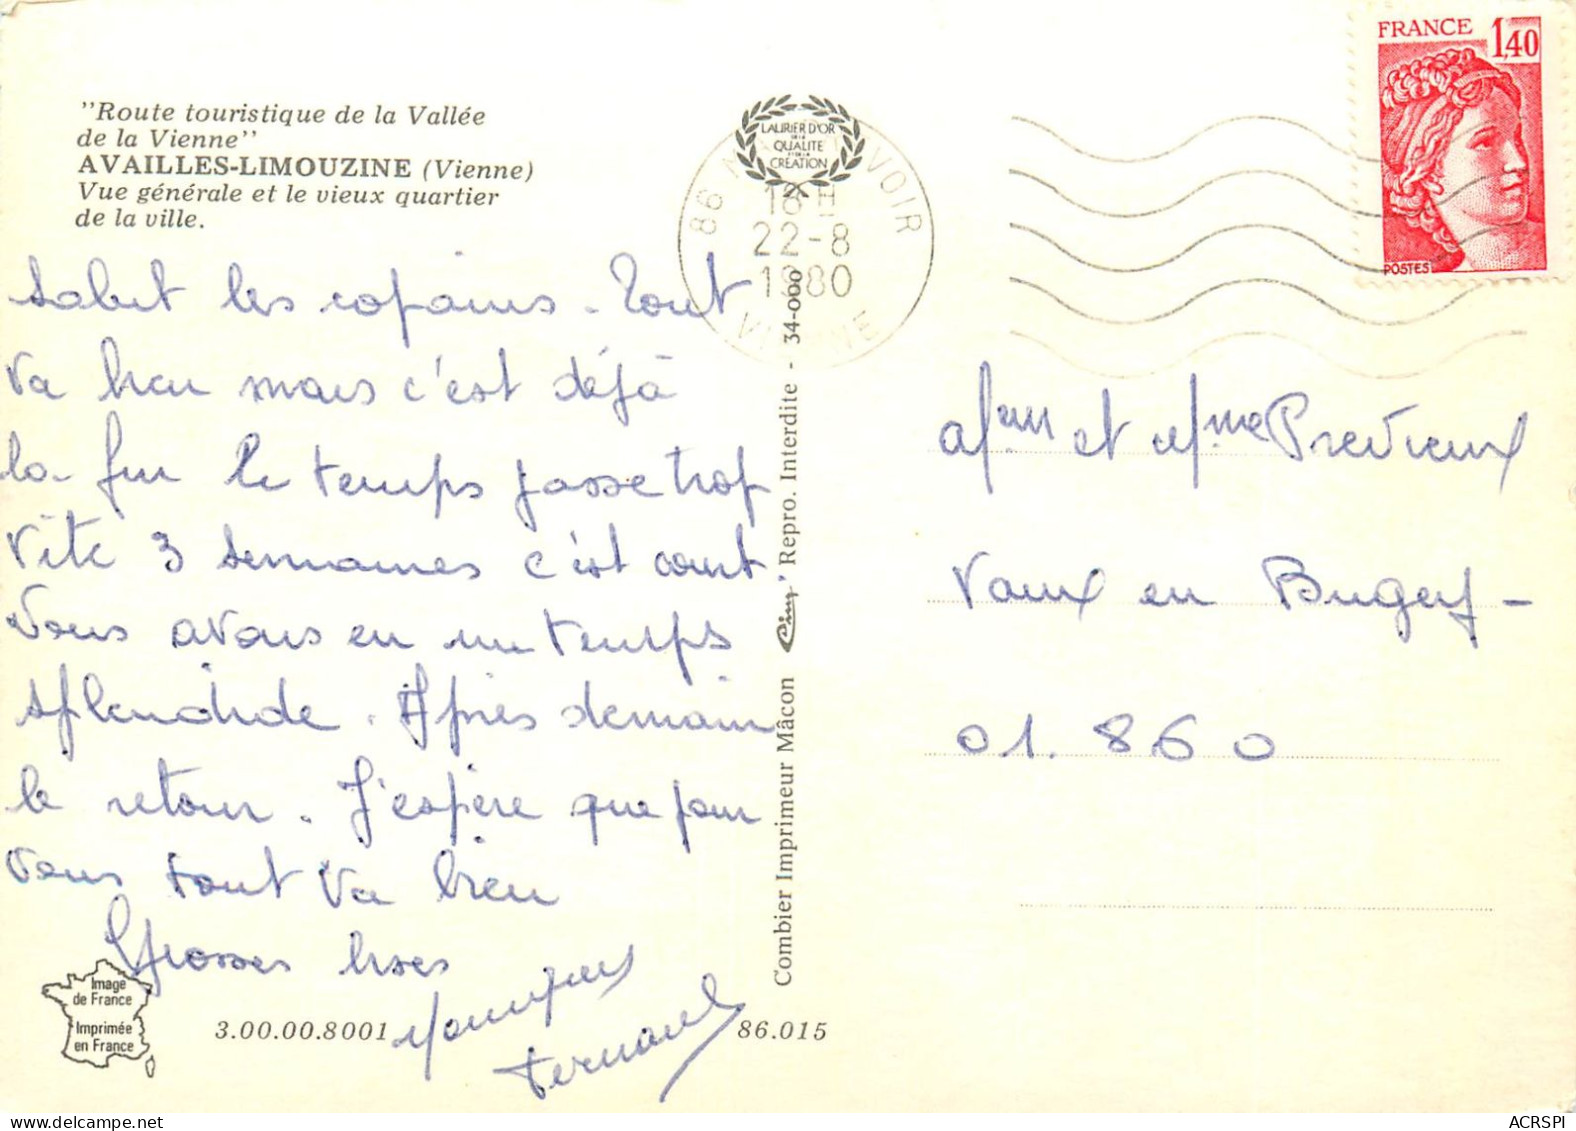 "Route touristique de la Vallée
de la Vienne"
AVAILLES-LIMOUZINE (Vienne)
Vue générale et le vieux quartier
de la ville.
Salut les copains. Tout
va bien mais c'est déjà
la fin le temps passe trop
vite 3 semaines c'est court
Nous avons eu un temps
splendide. Après demain
le retour. J'espère que pour
vous tout va bien
Grosses bises
Fernand
Image
de France
Imprimée
en France
3.00.00.8001
86.015
Combier Imprimeur Mâcon Cim Repro. Interdite - 34-000
LAURIER D'OR
DE LA
QUALITE
ET DE LA
CREATION
18 H
22-8
1980
VIENNE
FRANCE 1,40
POSTES
et Mme Prévieux
Vaux en Bugey -
01.860
ACRSPI